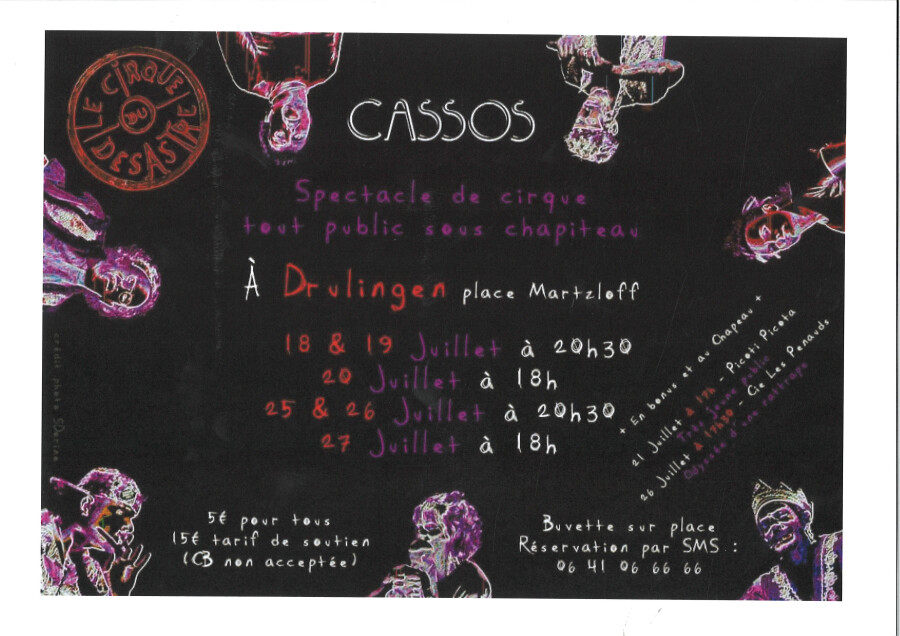 LE CIRQUE
DU
DÉSASTRE
CASSOS
Spectacle de cirque
tout public sous chapiteau
À Drulingen place Martzloff
18 & 19 Juillet à 20h30
20 Juillet à 18h
25 & 26 Juillet à 20h30
27 Juillet à 18h
+ En bonus et au Chapeau +
21 Juillet à 17h - Picoti Picota
jeune public
26 Juillet à 17h30 - Cie Les Penauds
Odyssée d'une
5€ pour tous
15€ tarif de soutien
(CB non acceptée)
Buvette sur place
Réservation par SMS :
06 41 06 66 66
crédit photo